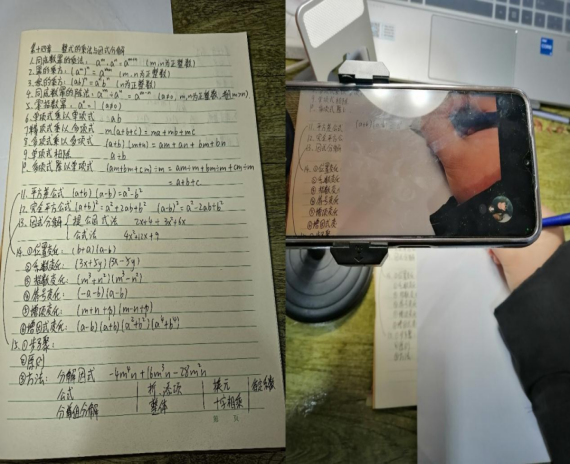 第十四章 整式的乘法与因式分解
1.同底数幂的乘法: aᵐ·aⁿ=aᵐ⁺ⁿ (m,n为正整数)
2.幂的乘方: (aᵐ)ⁿ=aᵐⁿ (m,n为正整数)
3.积的乘方: (ab)ⁿ=aⁿbⁿ (n为正整数)
4.同底数幂的除法: aᵐ÷aⁿ=aᵐ⁻ⁿ (a≠0,m,n为正整数,m>n)
5.零指数幂: a⁰=1 (a≠0)
6.单项式乘以单项式
7.单项式乘以多项式 m(a+b+c)=ma+mb+mc
8.多项式乘以多项式 (a+b)(m+n)=am+an+bm+bn
9.单项式相除 a÷b
10.多项式除以单项式 (am+bm+cm)÷m=am÷m+bm÷m+cm÷m
=a+b+c
11.平方差公式 (a+b)(a-b)=a²-b²
12.完全平方公式 (a+b)²=a²+2ab+b² (a-b)²=a²-2ab+b²
13.因式分解 提公因式法
公式法 4x²+12x+9
14.①位置变化: (b+a)(a-b)
②系数变化: (3x+5y)(3x-5y)
③指数变化: (m³+n²)(m³-n²)
④符号变化: (-a-b)(a-b)
⑤增项变化: (m+n+p)(m-n+p)
⑥增因式变化: (a-b)(a+b)(a²+b²)(a⁴+b⁴)
15.①步骤:
②原则
③方法: 分解因式 -4m⁴n+16m³n-28m²n
公式 拆、添项 换元
分组分解 整体 十字相乘